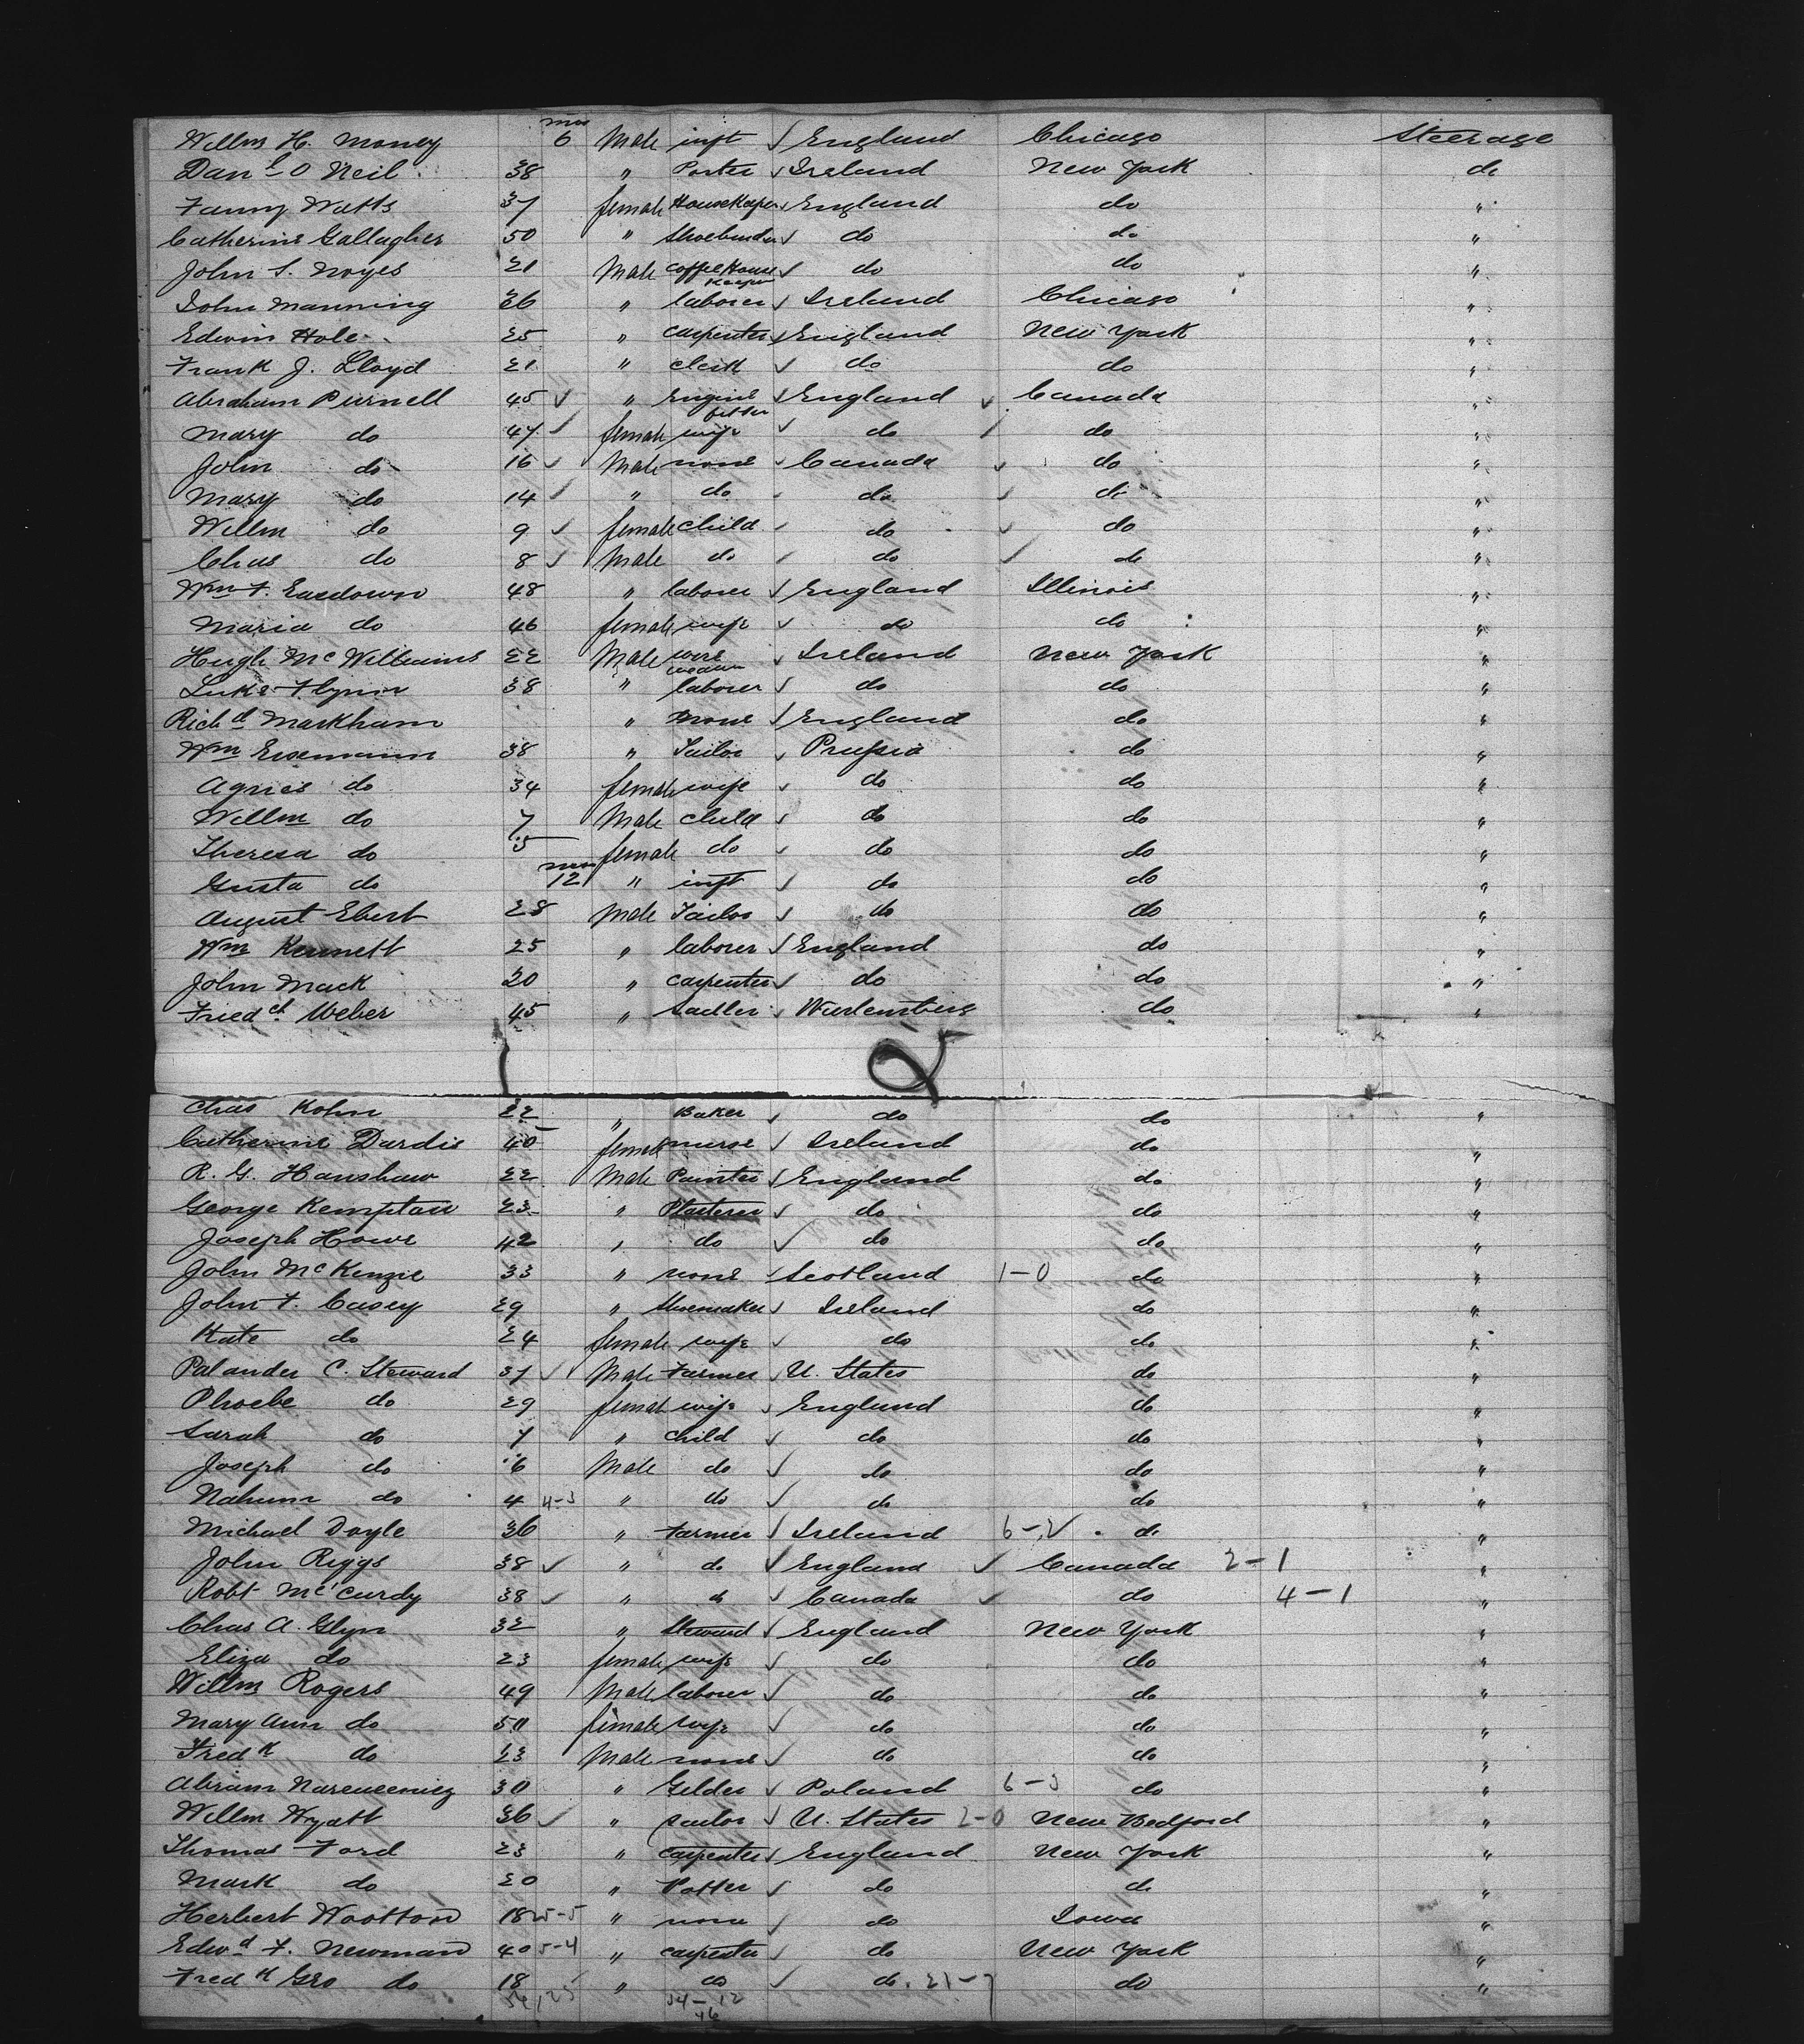 mos
Willm H. Money 6 Male inft England Chicago Steerage
Danl O Neil 38 " Porter Ireland New York do
Fanny Watts 37 female Housekeeper England do "
Catherine Gallagher 50 " Shoebinder do do "
John S. Noyes 21 Male Coffee House Keeper do do "
John Manning 26 " laborer Ireland Chicago "
Edwin Hole 25 " Carpenter England New York "
Frank J. Lloyd 21 " clerk do do "
Abraham Purnell 45 " Engine fitter England Canada "
Mary do 47 female wife do do "
John do 16 Male none Canada do "
Mary do 14 " do do do "
Willm do 9 female child do do "
Chas do 8 Male do do do "
Wm F. Easdown 48 " laborer England Illinois "
Maria do 46 female wife do do "
Hugh McWilliams 22 Male wire Ireland New York "
Luke Flynn 38 " laborer do do "
Richd Markham " none England do "
Wm Eisemann 38 " Tailor Prussia do "
Agnes do 34 female wife do do "
Willm do 7 Male child do do "
Theresa do 5 female do do do "
mos
Gusta do 12 " inft do do "
August Ebert 28 Male Tailor do do "
Wm Kennett 25 " laborer England do "
John Mack 20 " carpenter do do "
Friedch Weber 45 " Sadler Wurtemberg do "
Chas Kohn 22 " Baker do do "
Catherine Dardis 40 female nurse Ireland do "
R. G. Hanshaw 22 Male Painter England do "
George Kempton 23 " Plasterer do do "
Joseph Howe 42 " do do do "
John McKenzie 33 " none Scotland 1-0 do "
John F. Casey 29 " Shoemaker Ireland do "
Kate do 24 female wife do do "
Palander C. Steward 37 Male Farmer U. States do "
Phoebe do 29 female wife England do "
Sarah do 7 " child do do "
Joseph do 6 Male do do do "
Nahum do 4 4-3 " do do do "
Michael Doyle 36 " Farmer Ireland 6-2 do "
John Riggs 38 " do England Canada 2-1 "
Robt McCurdy 38 " do Canada do 4-1 "
Chas A. Glyn 32 " Steward England New York "
Eliza do 23 female wife do do "
Willm Rogers 49 Male laborer do do "
Mary Ann do 50 female wife do do "
Fredk do 23 Male none do do "
Abram 30 " Gilder Poland 6-3 do "
Willm Wyatt 36 " sailor U. States 2-0 New Bedford "
Thomas Ford 23 " carpenter England New York "
Mark do 20 " Potter do do "
Herbert Wootton 18 5-5 " none do Iowa "
Edwd F. Newman 40 5-4 " carpenter do New York "
Fredk Geo do 18 " do do 21-7 do "
54-12
46